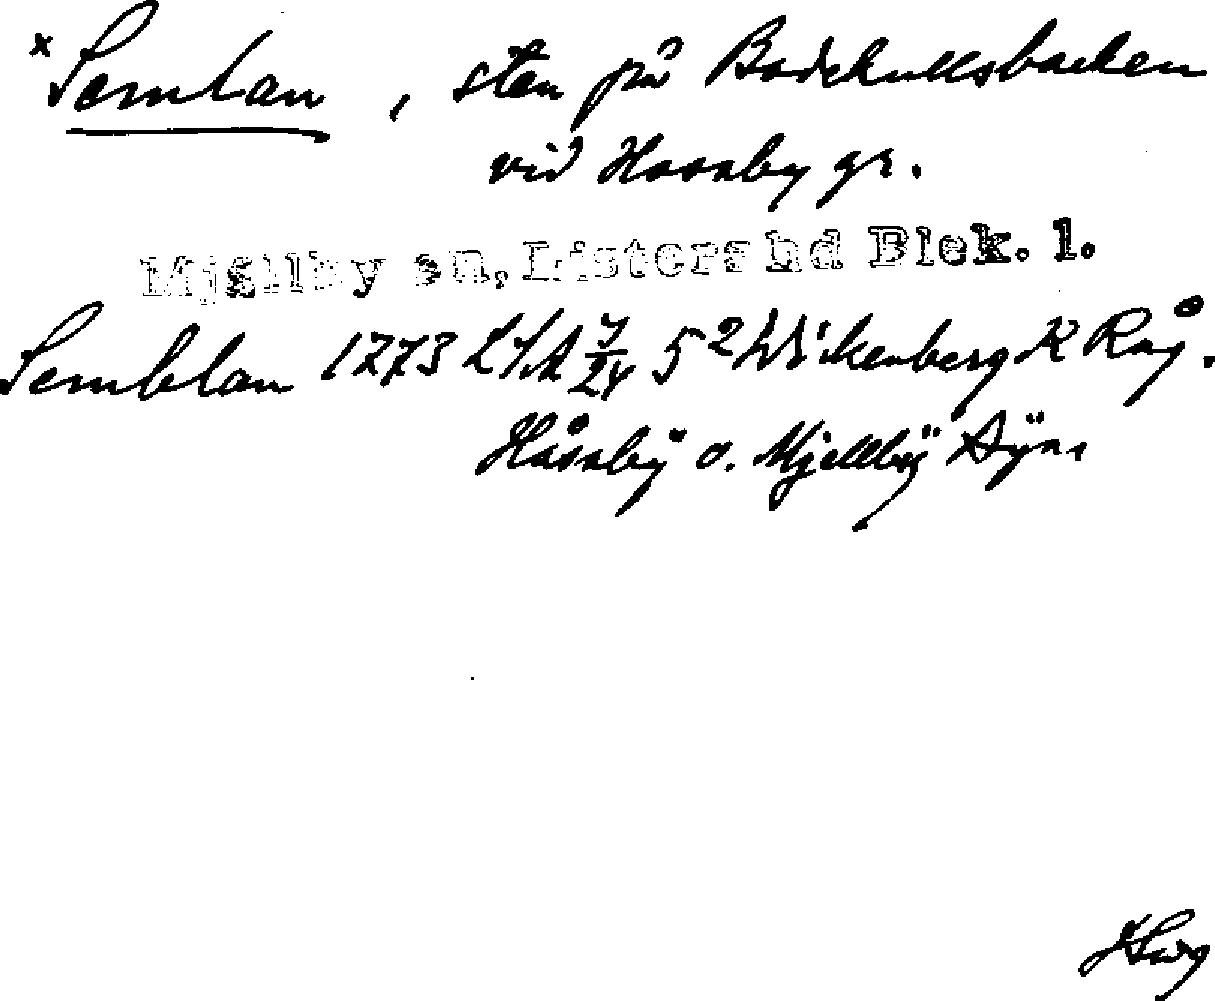 *Semlan, sten på Badekullsbacken
vid Hosaby gr.
Mjällby sn, Listers hd Blek. l.
Semblan 1773 LSA 7/24 5² Wikenberg K Råg.
Håsaby o. Mjellby Äÿor